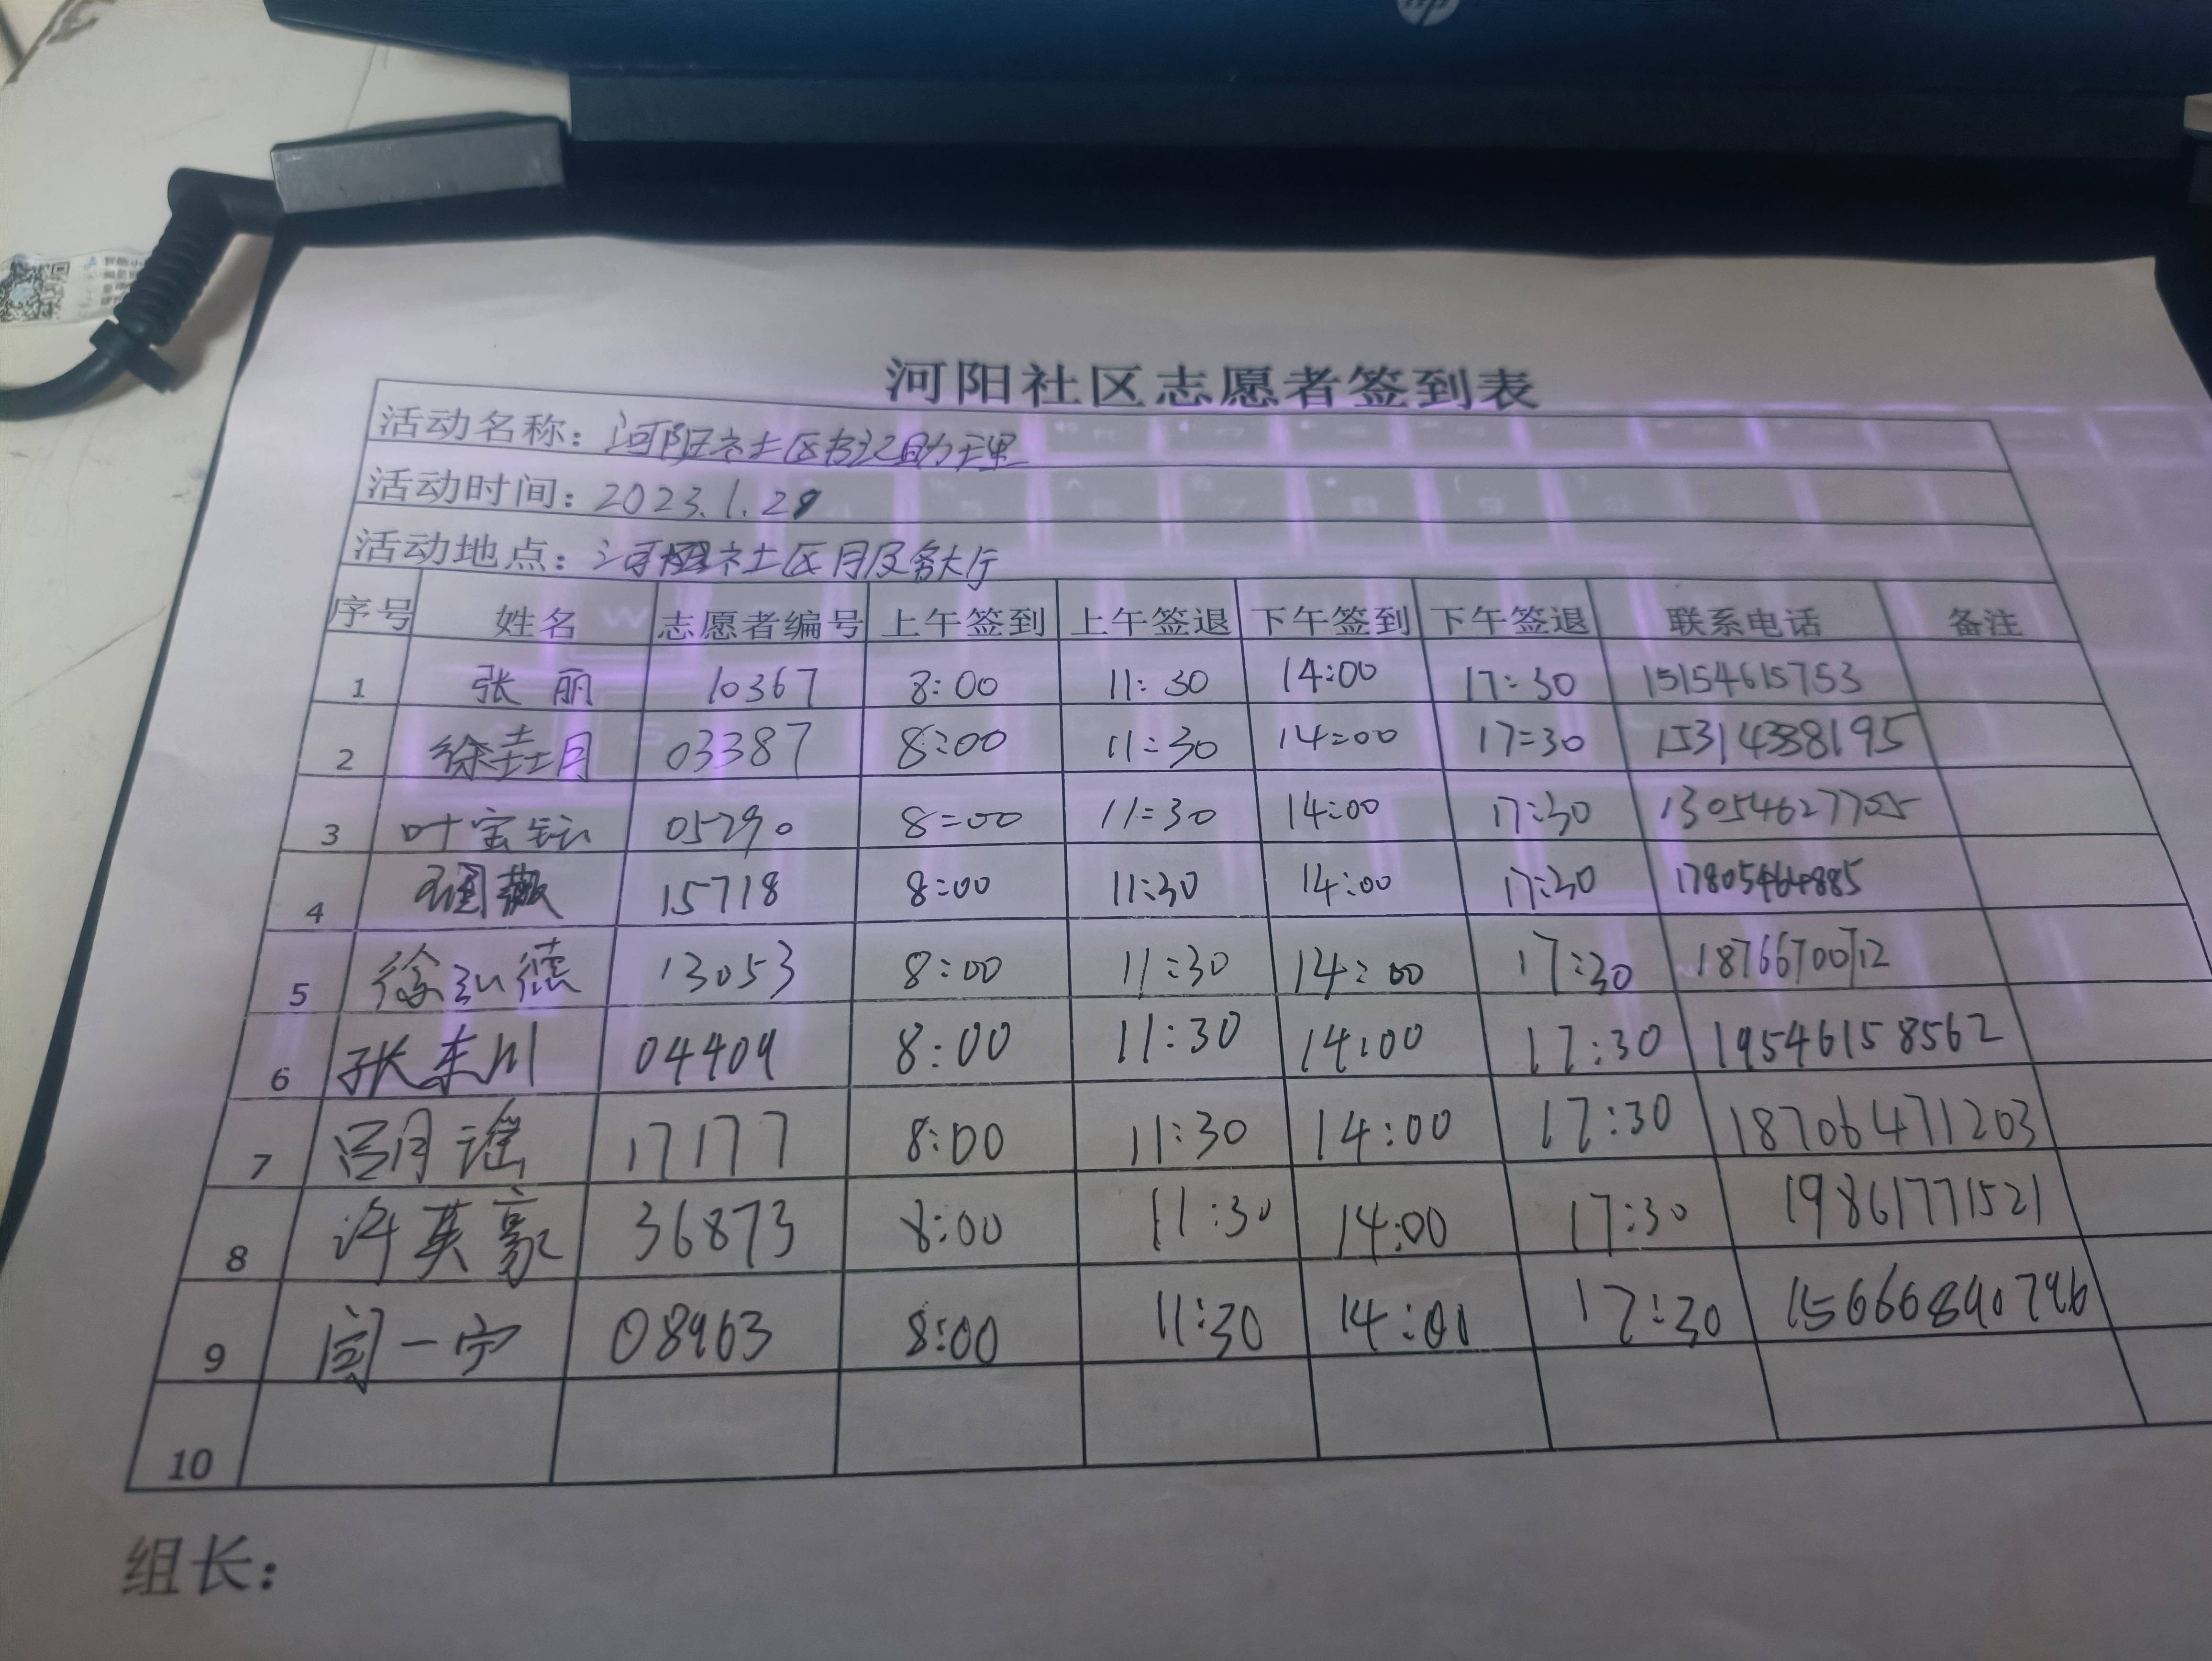 hp
河阳社区志愿者签到表
活动名称：河阳社区书记助理
活动时间：2023.1.29
活动地点：河阳社区服务大厅
序号 姓名 志愿者编号 上午签到 上午签退 下午签到 下午签退 联系电话 备注
1 张丽 10367 8:00 11:30 14:00 17:30 15154615753
2 徐壵月 03387 8:00 11:30 14:00 17:30 15314338195
3 叶宝钻 05290 8:00 11:30 14:00 17:30 13054627705
4 15718 8:00 11:30 14:00 17:30
5 徐弘德 13053 8:00 11:30 14:00 17:30 18766700712
6 张东川 04409 8:00 11:30 14:00 17:30 19546158562
7 吕月谣 17177 8:00 11:30 14:00 17:30 18706471203
8 许英豪 36873 8:00 11:30 14:00 17:30 19861771521
9 闫一宁 08963 8:00 11:30 14:00 17:30
10
组长：